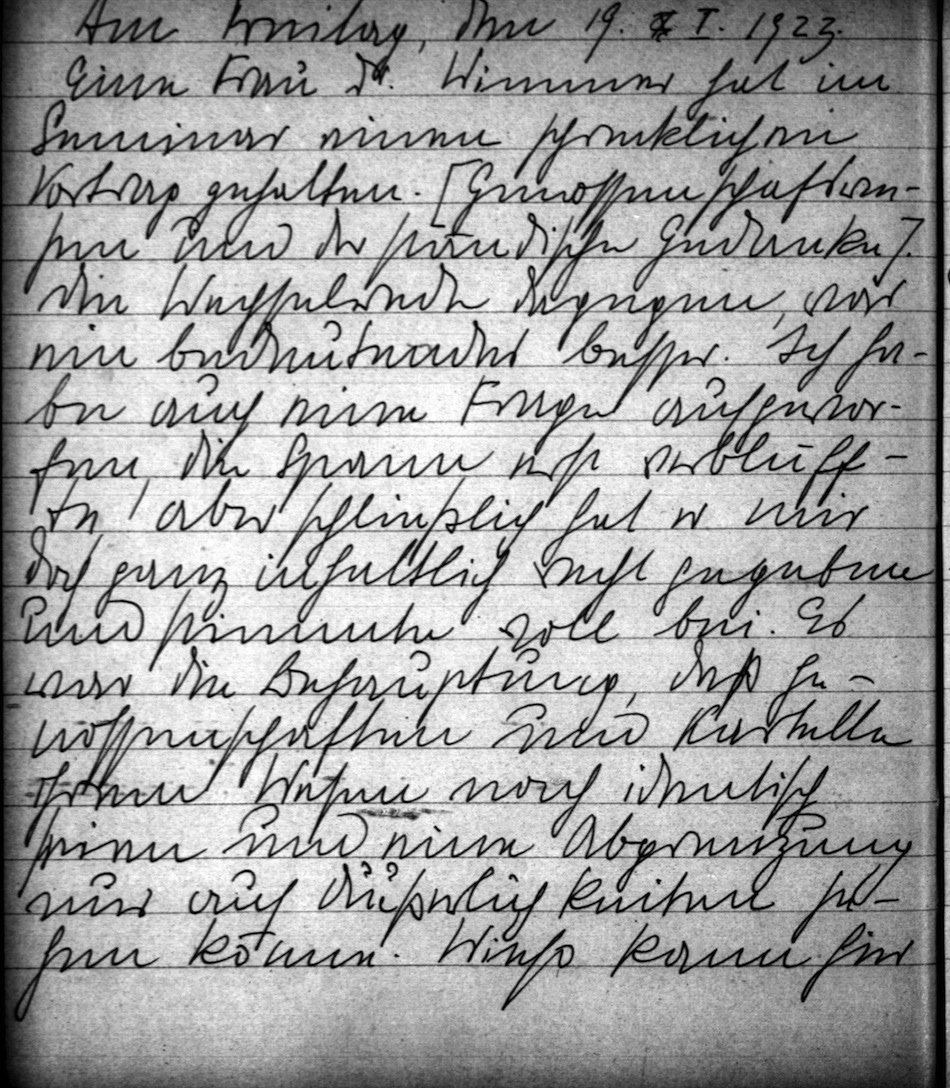 Am Freitag, den 19. I. 1923.
Eine Frau Dr. Wimmer hat im
Seminar einen schrecklichen
Vortrag gehalten. [Genossenschaftswe-
sen und der ständische Gedanke].
Die Wechselrede dagegen, war
ein bedeutendes besser. Ich ha-
be auch eine Frage aufgewor-
fen, die Spann erst verblüff-
te, aber schließlich hat er mir
doch ganz inhaltlich recht gegeben
und stimmte voll bei. Es
war die Behauptung, daß Ge-
nossenschaften und Kartelle
ihrem Wesen nach identisch
seien und eine Abgrenzung
nur auf Äußerlichkeiten
können. kann hier